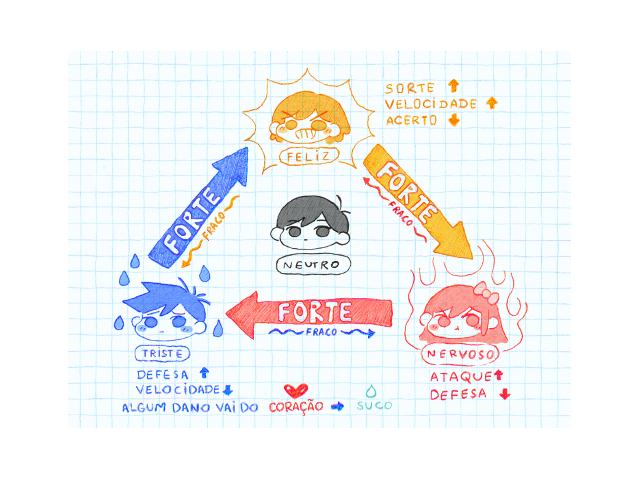 SORTE
VELOCIDADE
ACERTO
FELIZ
FORTE
FRACO
FORTE
FRACO
NEUTRO
FORTE
FRACO
TRISTE
NERVOSO
DEFESA
VELOCIDADE
ALGUM DANO VAI DO CORAÇÃO SUCO
ATAQUE
DEFESA